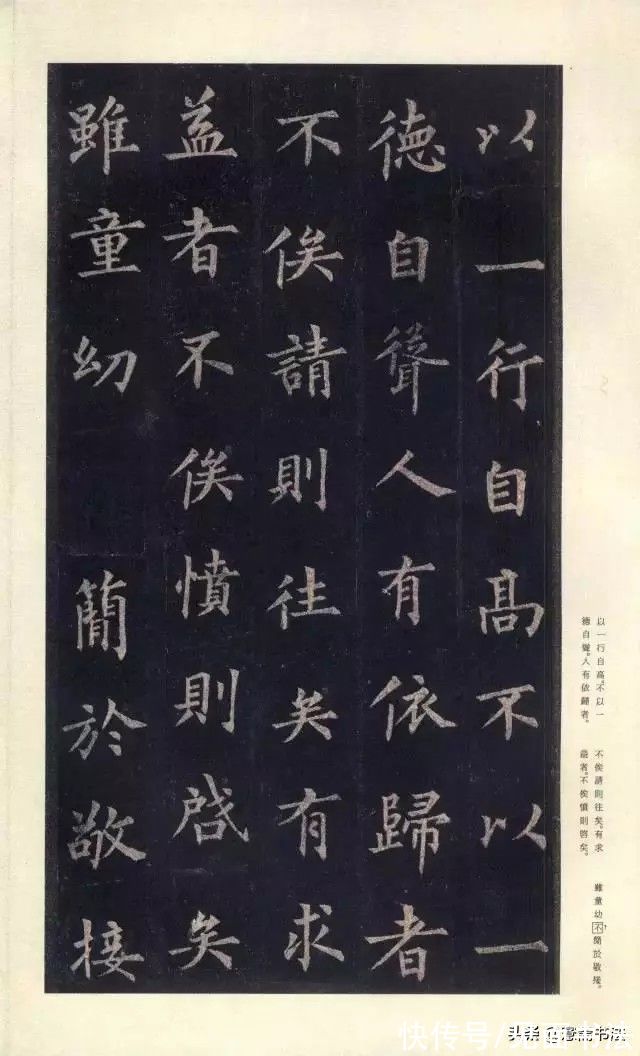 以一行自高不以一
德自聳人有依歸者
不俟請則往矣有求
益者不俟憤則啓矣
雖童幼簡於敬接
以一行自高。不以一
德自聳。人有依歸者。
不俟請則往矣。有求
益者。不俟憤則啓矣。
雖童幼不簡於敬接。
快传号/
头条 书法